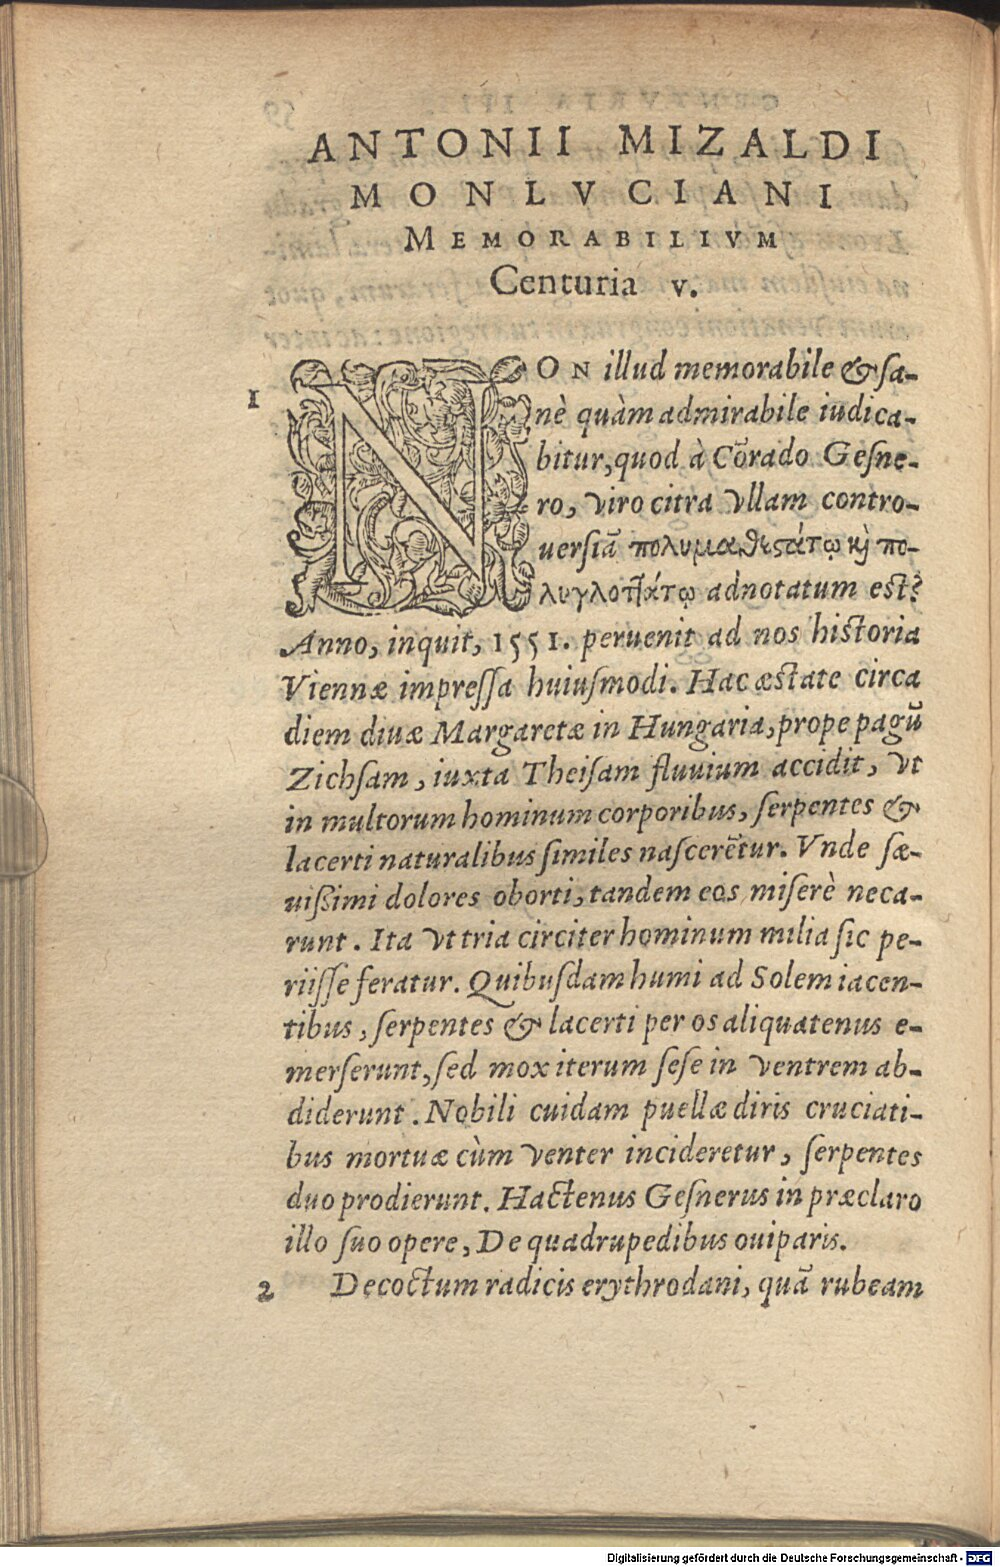 ANTONII MIZALDI
MONLVCIANI
MEMORABILIVM
Centuria v.
1 NON illud memorabile & sa-
nè quàm admirabile iudica-
bitur, quod à Cōrado Gesne-
ro, viro citra vllam contro-
uersiā πολυμαθεστάτῳ καὶ πο-
λυγλοττάτῳ adnotatum est?
Anno, inquit, 1551. peruenit ad nos historia
Viennæ impressa huiusmodi. Hac æstate circa
diem diuæ Margaretæ in Hungaria, prope pagū
Zichsam, iuxta Theisam fluuium accidit, vt
in multorum hominum corporibus, serpentes &
lacerti naturalibus similes nascerētur. Vnde sæ-
uissimi dolores oborti, tandem eos miserè neca-
runt. Ita vt tria circiter hominum milia sic pe-
riisse feratur. Quibusdam humi ad Solem iacen-
tibus, serpentes & lacerti per os aliquatenus e-
merserunt, sed mox iterum sese in ventrem ab-
diderunt. Nobili cuidam puellæ diris cruciati-
bus mortuæ cùm venter incideretur, serpentes
duo prodierunt. Hactenus Gesnerus in præclaro
illo suo opere, De quadrupedibus ouiparis.
2 Decoctum radicis erythrodani, quā rubeam
Digitalisierung gefördert durch die Deutsche Forschungsgemeinschaft - DFG